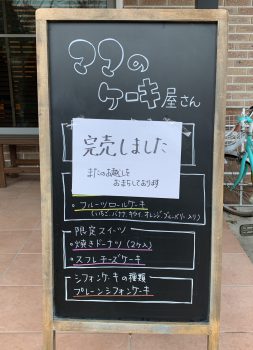 ママの
ケーキ屋さん
完売しました
またのお越しを
おまちしております
・フルーツロールケーキ
(いちご、バナナ、キウイ、オレンジ、ブルーベリー入り)
限定スイーツ
・焼きドーナツ(2ケ入)
・スフレチーズケーキ
シフォンケーキの種類
プレーンシフォンケーキ